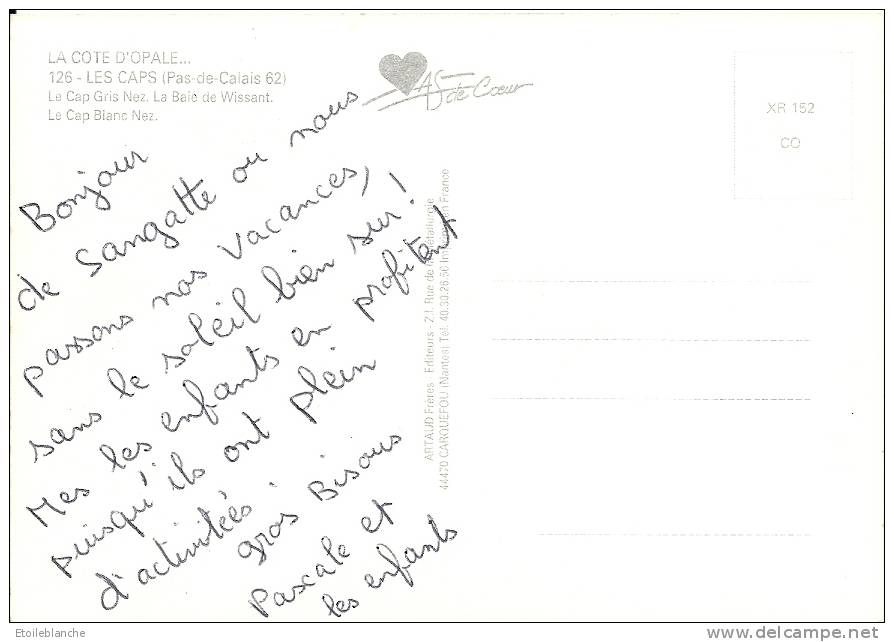 LA COTE D'OPALE...
126 - LES CAPS (Pas-de-Calais 62)
Le Cap Gris Nez. La Baie de Wissant.
Le Cap Blanc Nez.
AS de Cœur
XR 152
CO
Bonjour
de Sangatte ou nous
passons nos vacances,
sans le soleil bien sur!
Mes les enfants en profitent
puisqu'ils ont plein
d'activitéés.
gros Bisous
Pascale et
les enfants
ARTAUD Frères - Editeurs - Rue de la Métallurgie
44470 CARQUEFOU (Nantes) Tél. 40.30.26.50 in France
Etoileblanche
http://www.delcampe.net